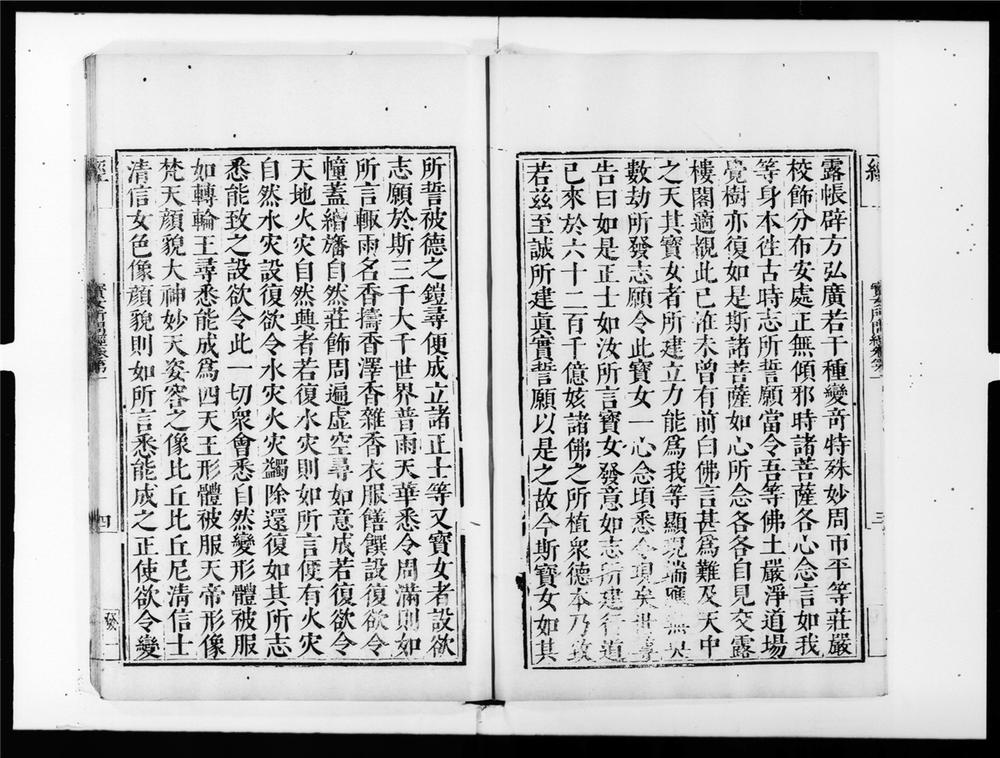 露帳辟方弘廣若干種變竒特殊妙周帀平等莊嚴
校飾分布安處正無傾邪時諸菩薩各心念言如我
等身本徃古時志所誓願當令吾等佛土嚴淨道場
覺樹亦復如是斯諸菩薩如心所念各各自見交露
樓閣適覩此已淮未曾有前白佛言甚爲難及天中
之天其寳女者所建立力能爲我等顯現瑞應無央
數劫所發志願令此寳女一心念頃悉令現矣世尊
告曰如是正士如汝所言寳女發意如志所建行道
已來於六十二百千億姟諸佛之所植衆德本乃致
若茲至誠所建眞實誓願以是之故今斯寳女如其
所誓被德之鎧尋便成立諸正士等又寳女者設欲
志願於斯三千大千世界普雨天華悉令周滿則如
所言輙雨名香擣香澤香雜香衣服饍饌設復欲令
幢蓋繒旛自然莊飾周遍虚空尋如意成若復欲令
天地火灾自然興者若復水灾則如所言便有火灾
自然水灾設復欲令水灾火灾蠲除還復如其所志
悉能致之設欲令此一切衆會悉自然變形體被服
如轉輪王尋悉能成爲四天王形體被服天帝形像
梵天顔貌大神妙天姿容之像比丘比丘尼清信士
清信女色像顔貌則如所言悉能成之正使欲令變
四